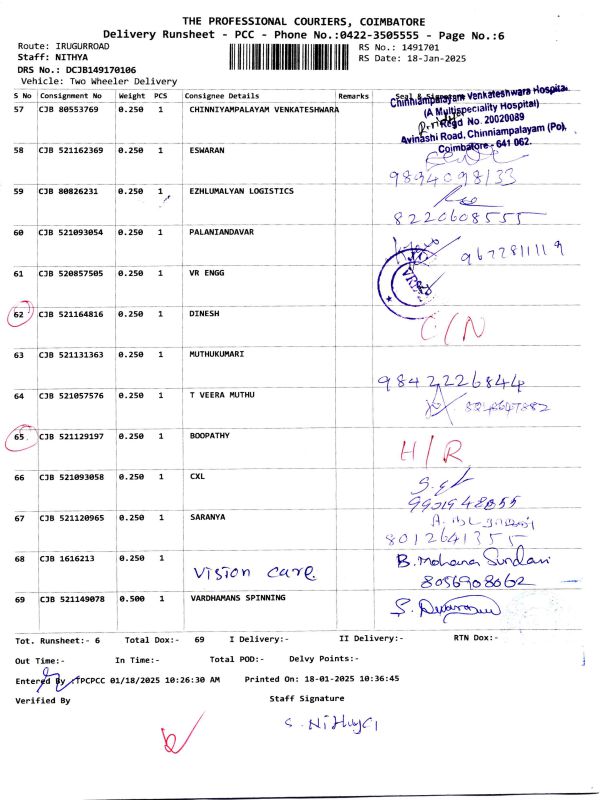 THE PROFESSIONAL COURIERS, COIMBATORE
Delivery Runsheet - PCC - Phone No.:0422-3505555 - Page No.:6
Route: IRUGURROAD
RS No.: 1491701
Staff: NITHYA
RS Date: 18-Jan-2025
DRS No.: DCJB149170106
Vehicle: Two Wheeler Delivery
S No Consignment No Weight PCS Consignee Details Remarks Seal & Signature
57 CJB 80553769 0.250 1 CHINNIYAMPALAYAM VENKATESHWARA
Chinniampalayam Venkateshwara Hospital
(A Multispeciality Hospital)
Regd No. 20020089
Avinashi Road, Chinniampalayam (Po),
Coimbatore - 641 062.
58 CJB 521162369 0.250 1 ESWARAN
9894098133
59 CJB 80826231 0.250 1 EZHLUMALYAN LOGISTICS
8220608555
60 CJB 521093054 0.250 1 PALANIANDAVAR
9672811119
61 CJB 520857505 0.250 1 VR ENGG
62 CJB 521164816 0.250 1 DINESH
C/N
63 CJB 521131363 0.250 1 MUTHUKUMARI
9842226844
64 CJB 521057576 0.250 1 T VEERA MUTHU
65 CJB 521129197 0.250 1 BOOPATHY
H/R
66 CJB 521093058 0.250 1 CXL
67 CJB 521120965 0.250 1 SARANYA
8012641355
68 CJB 1616213 0.250 1 Vision care.
B. Mohana Sundari
8056908062
69 CJB 521149078 0.500 1 VARDHAMANS SPINNING
Tot. Runsheet:- 6 Total Dox:- 69 I Delivery:- II Delivery:- RTN Dox:-
Out Time:- In Time:- Total POD:- Delvy Points:-
Entered By :TPCPCC 01/18/2025 10:26:30 AM Printed On: 18-01-2025 10:36:45
Verified By Staff Signature
S. Nithya